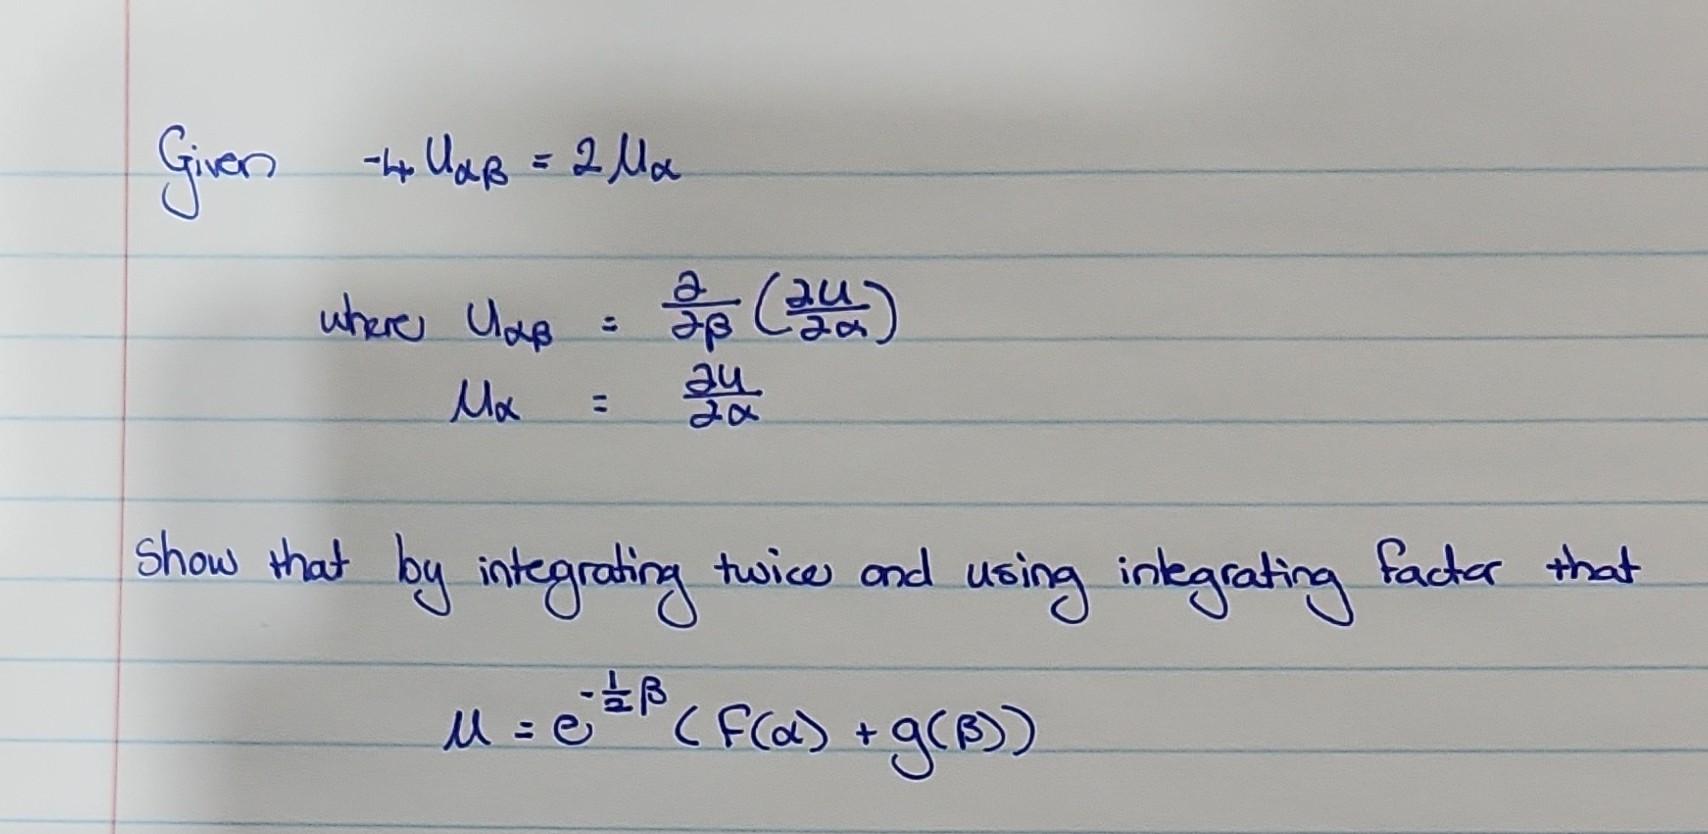 Given -4 Uαβ = 2 Uα
where Uαβ = ∂/∂β (∂u/∂α)
Uα = ∂u/∂α
Show that by integrating twice and using integrating factor that
U = e^(-1/2 β) (f(α) + g(β))